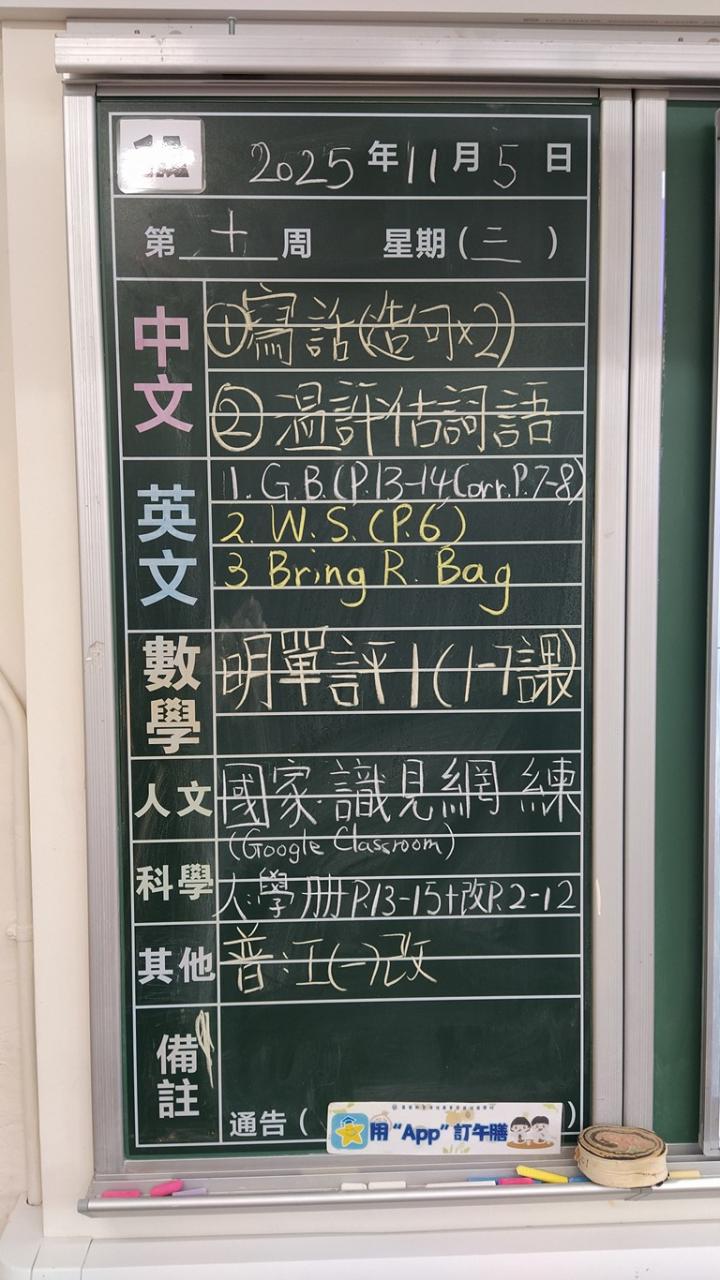 2025年11月5日
第十周 星期(三)
中文
①寫話(造句x2)
②溫評估詞語
英文
1. G.B.(P.13-14,Corr.P.7-8)
2. W.S.(P.6)
3 Bring R. Bag
數學
明單評1(1-7課)
人文
國家.識見網 練
(Google Classroom)
科學
人:學册P.13-15+改P.2-12
其他
普:工(一)改
備註
通告( )
用“App”訂午膳